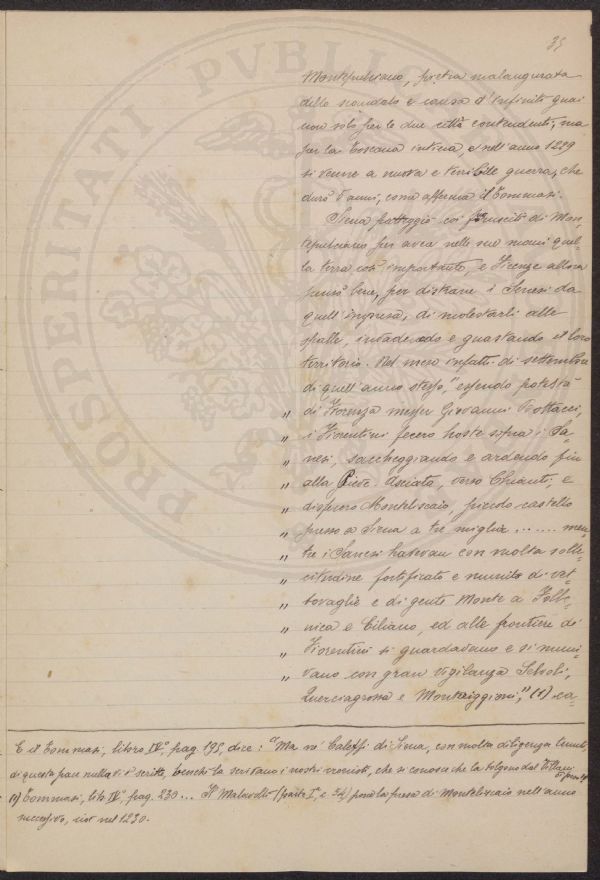 35
Montepulciano, pietra malaugurata
dello scandalo e causa d'infiniti guai
non solo per le due città contendenti, ma
per la Toscana intiera, e nell'anno 1229
si venne a nuova e terribile guerra, che
durò 5 anni, come afferma il Tommasi.
Siena patteggiò coi fuorusciti di Mon-
tepulciano per avea nelle sue mani quel-
la terra così importante, e Firenze allora
pensò bene, per distrarre i Senesi da
quell'impresa, di molestarli alle
spalle, invadendo e guastando il loro
territorio. Nel mese infatti di settembre
di quell'anno stesso, "essendo potestà
" di Fiorenza messer Giovanni Bottacci,
" i Fiorentini fecero hoste sopra i Sa-
" nesi, saccheggiando e ardendo fin
" alla Pieve Asciata, verso Chianti, e
" disfecero Monteliscaio, piccolo castello
" presso a Siena a tre miglia ....... men-
" tre i Sanesi havevan con molta solle-
" citudine fortificato e munito di vet-
" tovaglie e di genti Monte a Follo-
" nica e Ciliano, ed alle frontiere de
" Fiorentini si guardavano e si muni-
" vano con gran vigilanza Selvoli,
Querciagrossa e Monteriggioni," (1) ca-
E il Tommasi, libro IV°, pag. 195, dice: "Ma né Caleffi di Siena, con molta diligenza tenuti,
di questa pace nulla vi è scritto, benchè la scrivano i nostri cronisti, che si conosce che la tolgono dal Villani
(1) Tommasi, lib. IV°, pag. 230... Il Malavolti (parte I°, c 54) pone la presa di Monteliscaio nell'anno
successivo, cioè nel 1230.
PROSPERITATI PVBLICAE